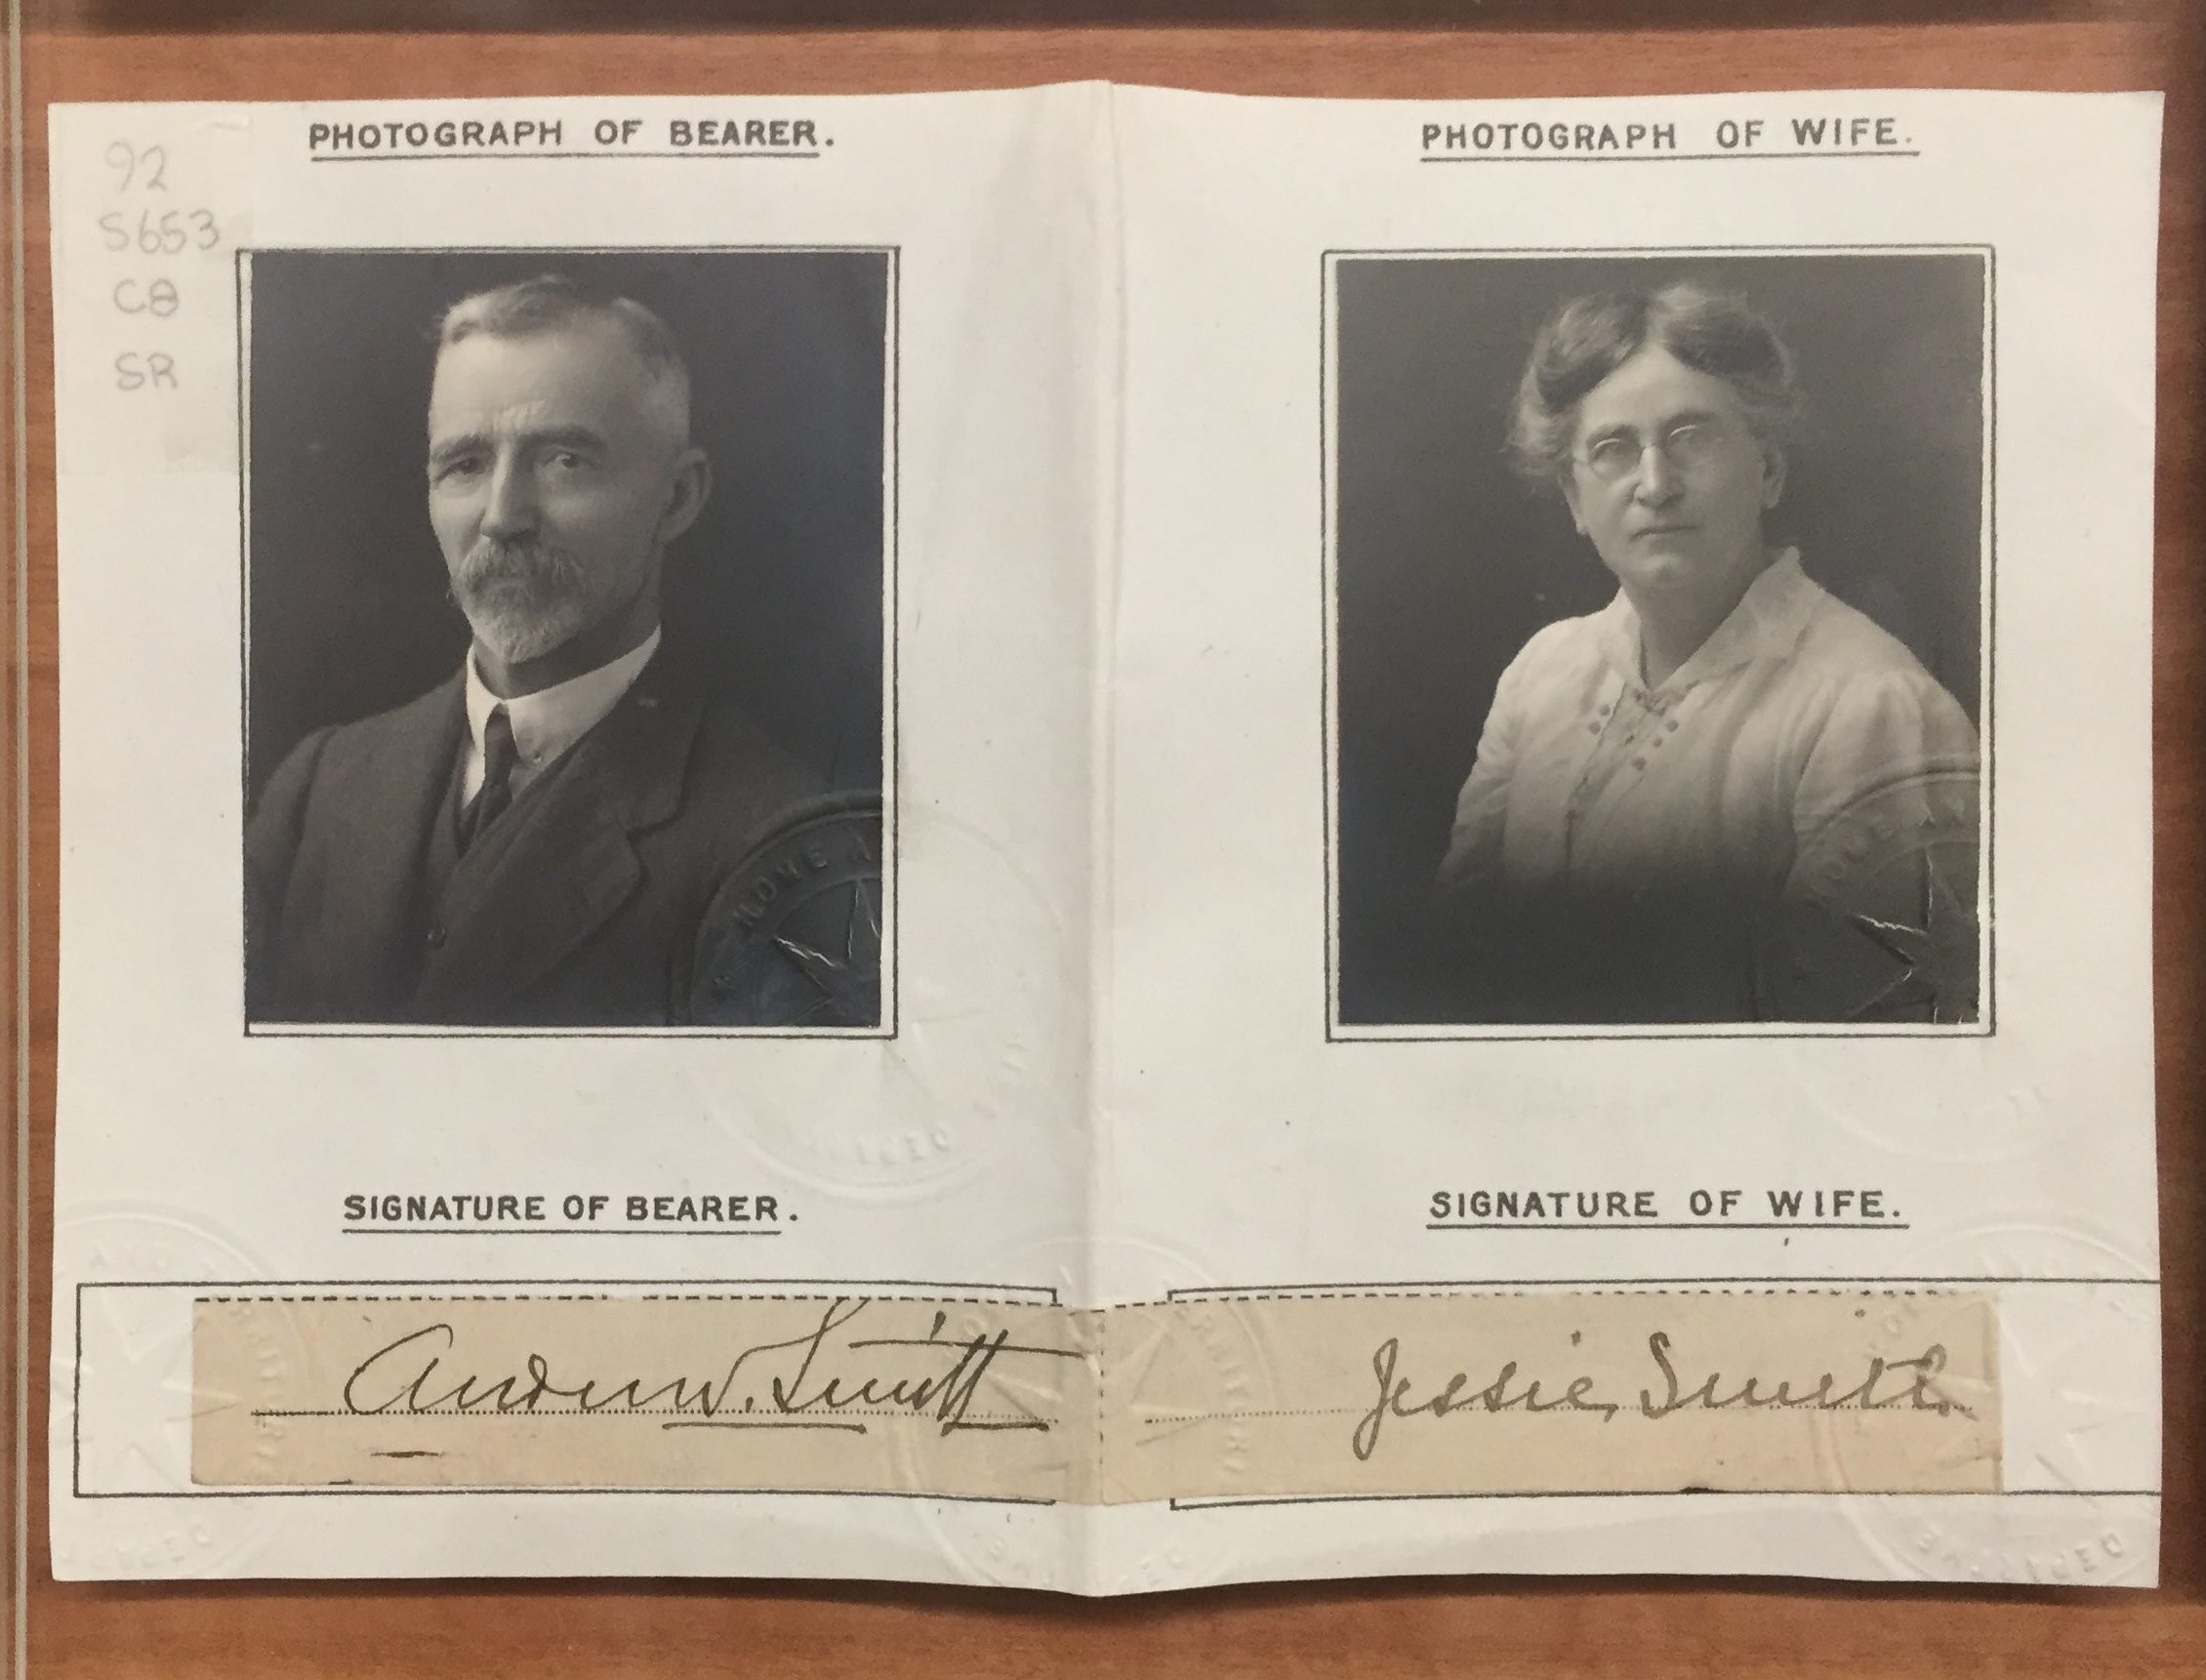 92
S653
C8
SR
PHOTOGRAPH OF BEARER.
PHOTOGRAPH OF WIFE.
SIGNATURE OF BEARER.
SIGNATURE OF WIFE.
Andrew Smith
Jessie Smith